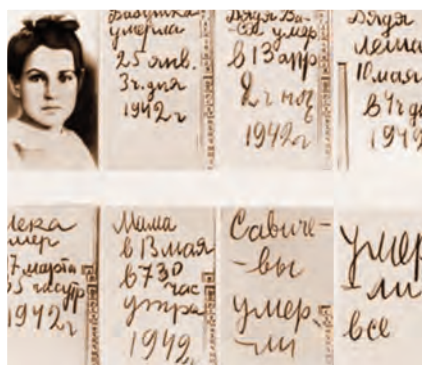 Бабушка
умерла
25 янв.
3ч. дня
1942г
Дядя Ва-
ся умер
в 13 апр
2ч ноч
1942г
Дядя
Леша
10 мая
в 4ч дн
1942
Лека
мер
7 марта
5 час утр
1942г
Мама
в 13 мая
в 7 30
час
утра
1942
Савиче-
-вы
умер-
-ли
умер
-ли
все